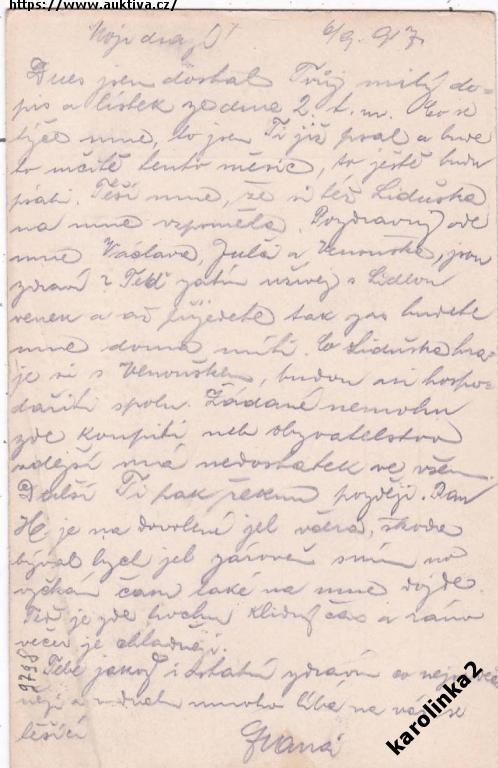 https://www.auktiva.cz/
Moje drahá! 6/9. 917.
Dnes jsem dostal Tvůj milý do-
pis a lístek ze dne 2. t. m. Co se
týče mne, to jsem Ti již psal a bude
to určitě tento měsíc, to ještě budu
psáti. Těší mne, že si též Liduška
na mne vzpoměla. Pozdravuj ode
mne Václava, Julii a Venouška, jsou
zdrávi? Teď zatím užívej s Lidkou
venek a až přijedete tak zas budete
mne doma míti. Co Liduška hra-
je si s Venouškem, budou asi hospo-
dařiti spolu. Žádané nemohu
zde koupiti neb obyvatelstvo
zdejší má nedostatek ve všem.
Další Ti pak řeknu později. Pan
H. je na dovolené jel včera, škoda
býval bych jel zároveň s ním no
vyčkám času také na mne dojde
Teď je zde trochu klidný čas a ráno
večer je chladněji.
Tebe jakož i ostatní zdravím co nej
něji a v duchu mnoho líbá na vás se
těšící
9798
karolinka2